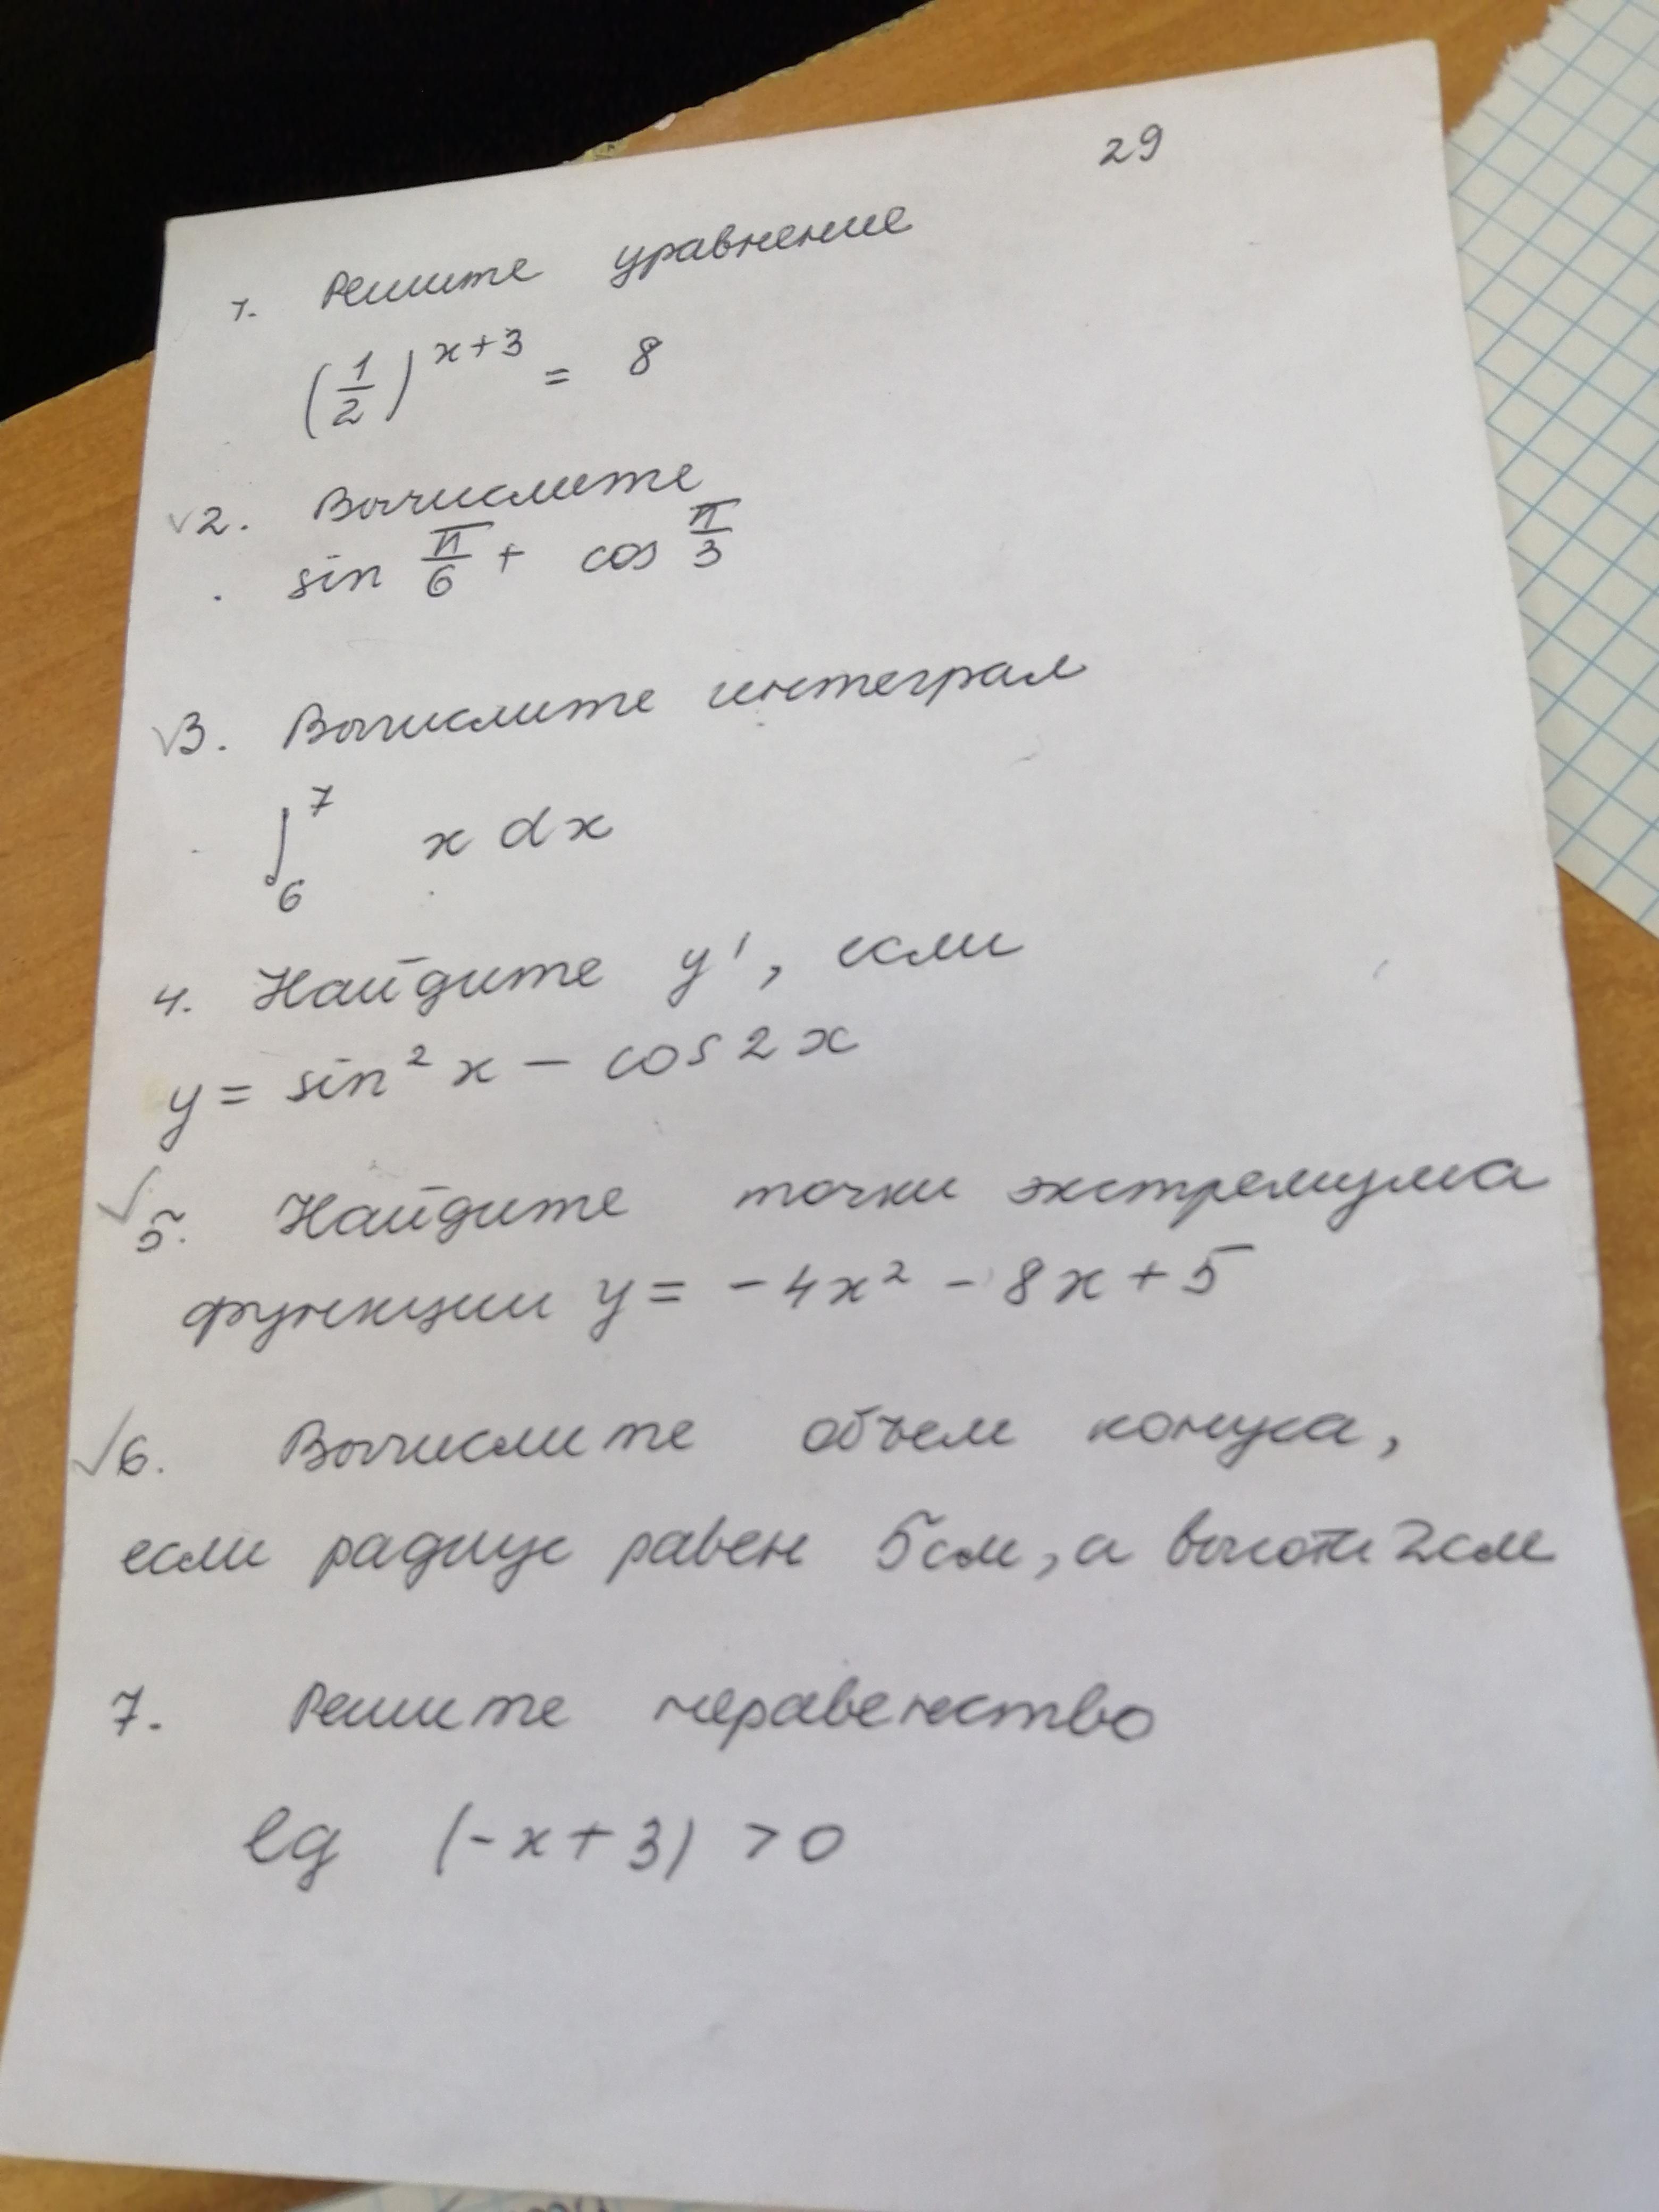 29
1. Решите уравнение
(1/2)^(x+3) = 8
√2. Вычислите
sin π/6 + cos π/3
√3. Вычислите интеграл
∫₆⁷ x dx
4. Найдите y', если
y = sin² x - cos 2x
√5. Найдите точки экстремума
функции y = -4x² - 8x + 5
√6. Вычислите объем конуса,
если радиус равен 5 см, а высота 2 см
7. Решите неравенство
lg (-x+3) > 0